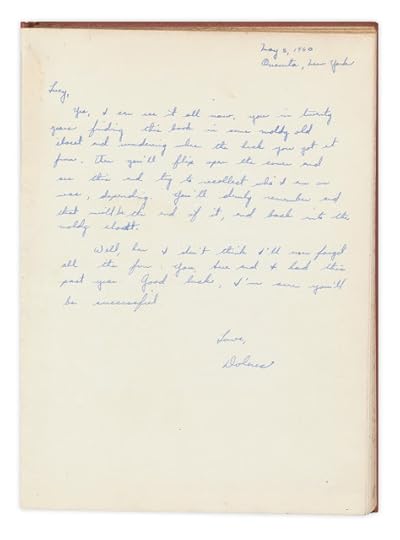 May 8, 1960
Oneonta, New York
Lucy,
Yes, I can see it all now, you in twenty
years finding this book in some moldy old
closet and wondering where the heck you got it
from. Then you'll flip open the cover and
see this and try to recollect who I am or
was, depending. You'll slowly remember and
that will be the end of it, and back into the
moldy closet.
Well, hon I don't think I'll ever forget
all the fun you, and I had this
past year. Good luck, I'm sure you'll
be successful
Love,
Dolores